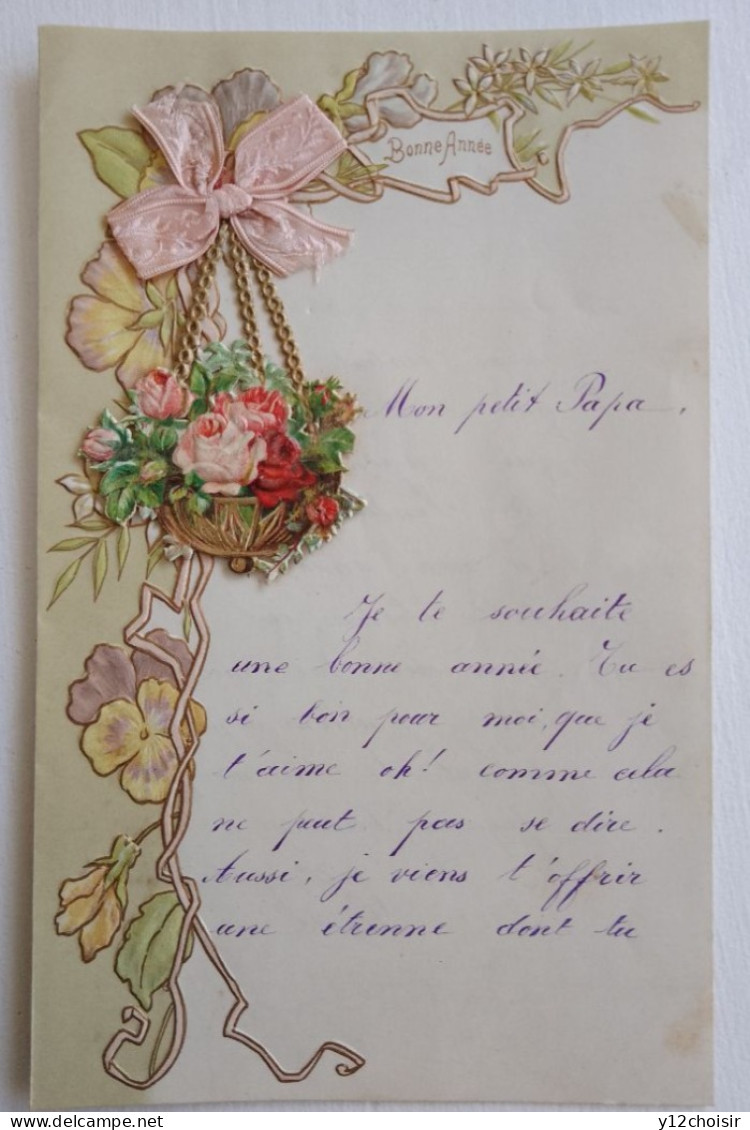 Bonne Année
Mon petit Papa,
Je te souhaite
une bonne année. Tu es
si bon pour moi, que je
t'aime oh! comme cela
ne peut pas se dire.
Aussi, je viens t'offrir
une étrenne dont tu
delcampe.net
y12choisir